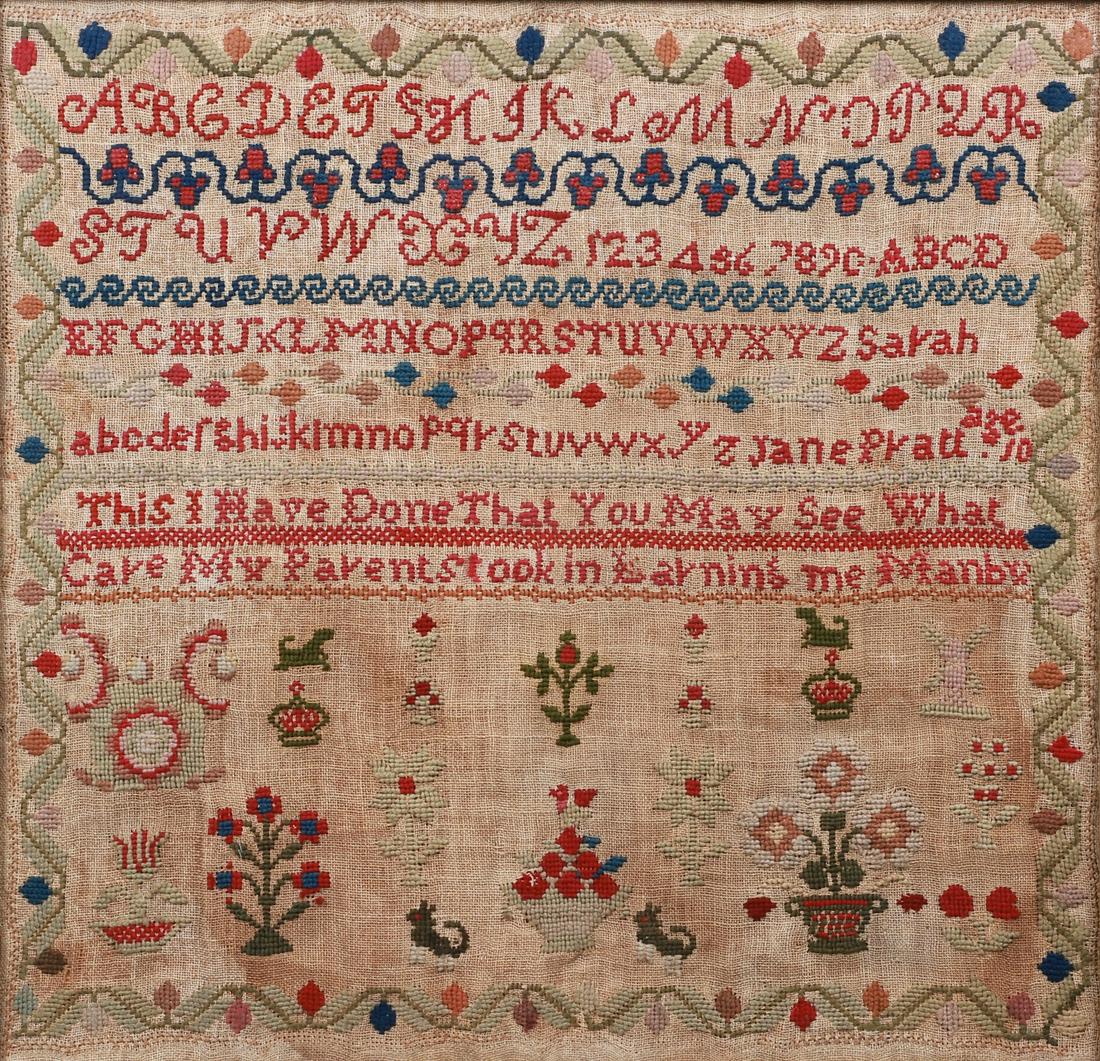 ABCDEFGHIKLMNOPQR
STUVWXYZ 1234567890 ABCD
EFGHIJKLMNOPQRSTUVWXYZ Sarah
abcdefghijklmnopqrstuvwxyz Jane Pratt age 10
This I Have Done That You May See What
Care My Parents took in Larning me Manby